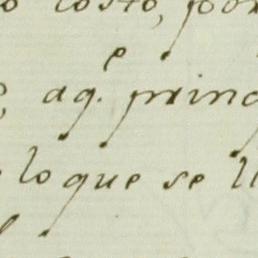 costo, por
aq.e princ
lo que se ll